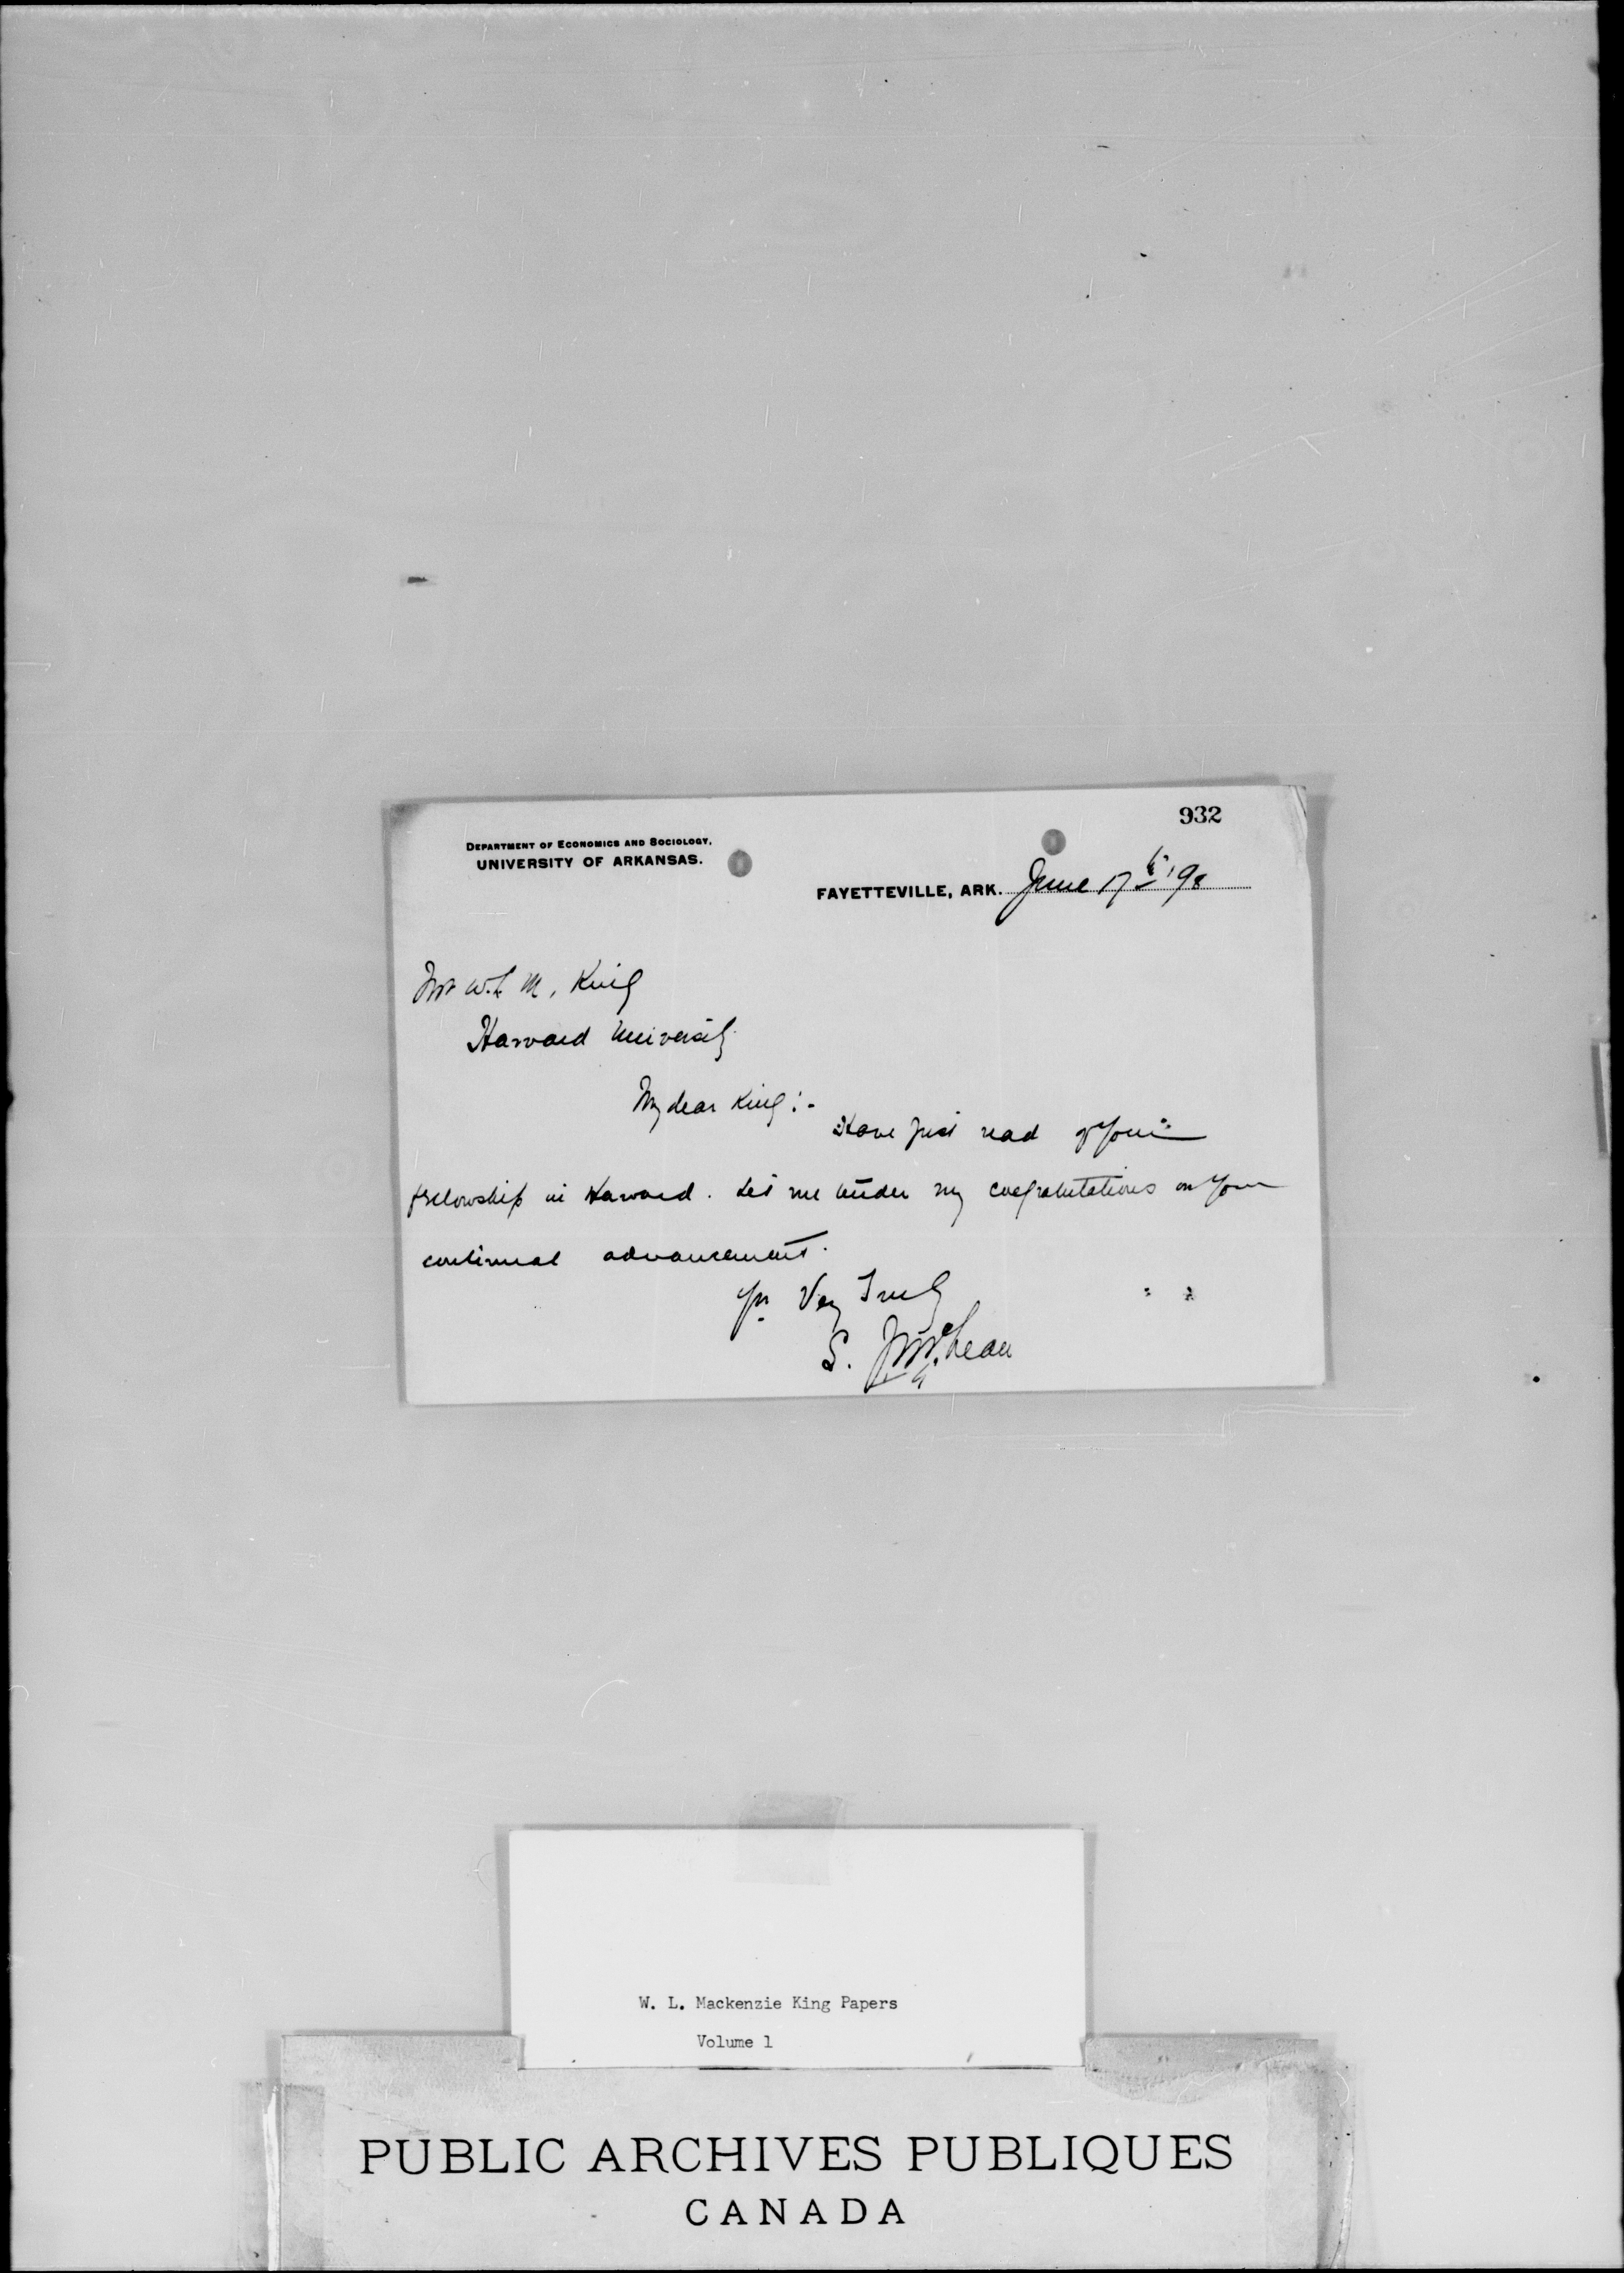 932
DEPARTMENT OF ECONOMICS AND SOCIOLOGY,
UNIVERSITY OF ARKANSAS.
FAYETTEVILLE, ARK. June 17th '98
Mr W. L. M. King
Harvard University
My dear King:-
Have just read of your
fellowship in Harvard. Let me tender my congratulations on your
continual advancement.
Yrs Very Truly
S. J. McLean
W. L. Mackenzie King Papers
Volume 1
PUBLIC ARCHIVES PUBLIQUES
CANADA